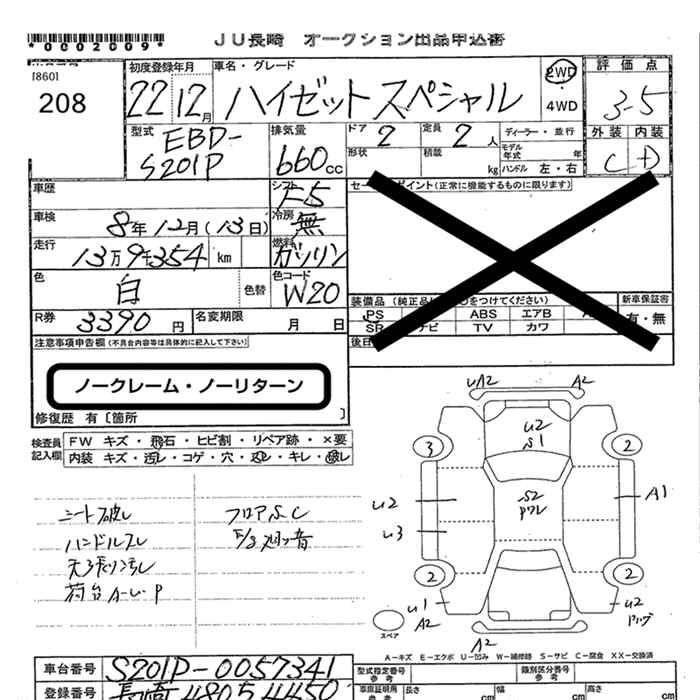 *0002009*
JU長崎 オークション出品申込書
[860]
208
初度登録年月
22 12月
車名・グレード
ハイゼットスペシャル
2WD
4WD
評価点
3.5
外装 内装
C D
型式
EBD-
S201P
排気量
660cc
ドア 2
定員 2人
ディーラー・並行
形状
積載 kg
モデル年式 年
ハンドル 左・右
車歴
シフト F5
車検 8年12月(13日)
冷房 無
走行 13万9千354 km
燃料 ガソリン
色 白
色替
色コード W20
R券 3390円
名変期限 月 日
セールスポイント(正常に機能するものに限ります)
新車保証書
有・無
PS
ABS
エアB
SR
ナビ
TV
カワ
注意事項申告欄(不具合内容等は具体的に記入して下さい)
ノークレーム・ノーリターン
修復歴 有〔箇所 〕
検査員
記入欄
FW キズ・飛石・ヒビ割・リペア跡・×要
内装 キズ・汚レ・コゲ・穴・スレ・キレ・破レ
シート破レ
ハンドルスレ
天張リ汚レ
荷台A・U・P
フロアS,C
uA2
A2
u2
S1
3
2
S2
u2
A1
u3
2
2
u1
A2
u2
スペア
A2
A-キズ E-エクボ U-凹み W-補修跡 S-サビ C-腐食 XX-交換済
車台番号 S201P-0057341
登録番号 長崎48054450
型式指定番号
参考
類別区分番号
参考
車庫証明用
参考
長さ cm
幅 cm
高さ cm